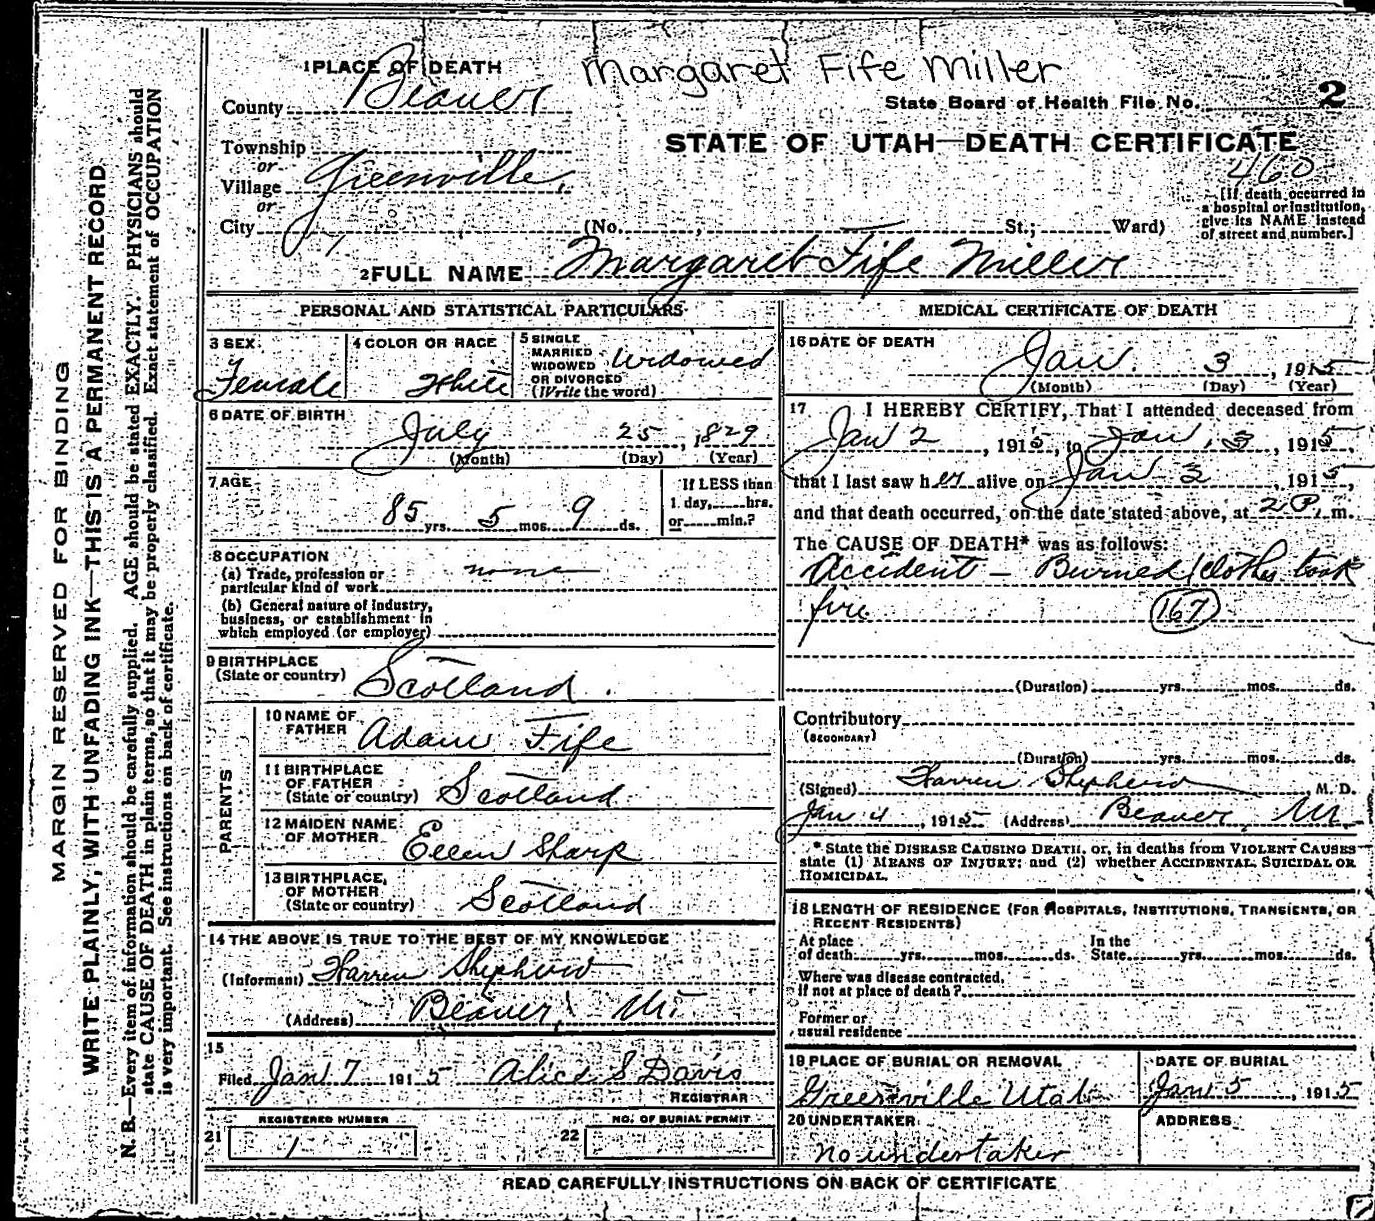 Margaret Fife Miller
1 PLACE OF DEATH
County Beaver
State Board of Health File No. 2
Township
or
Village Greenville,
or
City
STATE OF UTAH—DEATH CERTIFICATE
460
[If death occurred in
a hospital or institution,
give its NAME instead
of street and number.]
(No. St.; Ward)
2 FULL NAME Margaret Fife Miller
PERSONAL AND STATISTICAL PARTICULARS
3 SEX.
Female
4 COLOR OR RACE
White
5 SINGLE
MARRIED
WIDOWED
OR DIVORCED
(Write the word)
Widowed
6 DATE OF BIRTH
July 25, 1829
(Month) (Day) (Year)
7 AGE
85 yrs. 5 mos. 9 ds.
If LESS than
1 day, hrs.
or min.?
8 OCCUPATION
(a) Trade, profession or
particular kind of work none
(b) General nature of industry,
business, or establishment in
which employed (or employer)
9 BIRTHPLACE
(State or country) Scotland.
PARENTS
10 NAME OF
FATHER Adam Fife
11 BIRTHPLACE
OF FATHER
(State or country) Scotland
12 MAIDEN NAME
OF MOTHER Ellen Sharp
13 BIRTHPLACE,
OF MOTHER
(State or country) Scotland
14 THE ABOVE IS TRUE TO THE BEST OF MY KNOWLEDGE
(Informant) Warren Shepherd
(Address) Beaver, Ut.
15
Filed Jan 7 1915 Alice S Davis
REGISTRAR
REGISTERED NUMBER
21 1
NO. OF BURIAL PERMIT
22
MEDICAL CERTIFICATE OF DEATH
16 DATE OF DEATH
Jan. 3, 1915
(Month) (Day) (Year)
17 I HEREBY CERTIFY, That I attended deceased from
Jan 2, 1915, to Jan. 3, 1915,
that I last saw her alive on Jan 3, 1915,
and that death occurred, on the date stated above, at 2 P. m.
The CAUSE OF DEATH* was as follows:
Accident — Burned (clothes took
fire 167
(Duration) yrs. mos. ds.
Contributory
(SECONDARY)
(Duration) yrs. mos. ds.
(Signed) Warren Shepherd, M. D.
Jan 4, 1915 (Address) Beaver, Ut.
* State the DISEASE CAUSING DEATH, or, in deaths from VIOLENT CAUSES
state (1) MEANS OF INJURY; and (2) whether ACCIDENTAL, SUICIDAL OR
HOMICIDAL.
18 LENGTH OF RESIDENCE (FOR HOSPITALS, INSTITUTIONS, TRANSIENTS, OR
RECENT RESIDENTS)
At place
of death yrs. mos. ds.
In the
State yrs. mos. ds.
Where was disease contracted,
if not at place of death?
Former or
usual residence
19 PLACE OF BURIAL OR REMOVAL
Greenville Utah
DATE OF BURIAL
Jan 5, 1915
20 UNDERTAKER
no undertaker
ADDRESS
READ CAREFULLY INSTRUCTIONS ON BACK OF CERTIFICATE
MARGIN RESERVED FOR BINDING
WRITE PLAINLY, WITH UNFADING INK—THIS IS A PERMANENT RECORD
N. B.—Every item of information should be carefully supplied. AGE should be stated EXACTLY. PHYSICIANS should
state CAUSE OF DEATH in plain terms, so that it may be properly classified. Exact statement of OCCUPATION
is very important. See instructions on back of certificate.